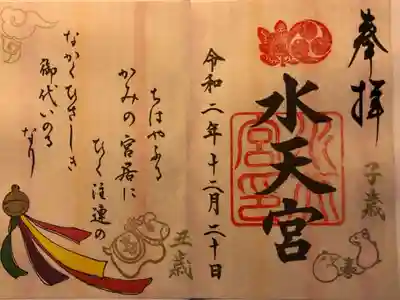 奉拝
子歳
水天宮
水天宮印
令和二年十二月二十日
丑歳
ちはやふる
かみの宮居に
ひく注連の
なかくひさしき
御代いのる
なり